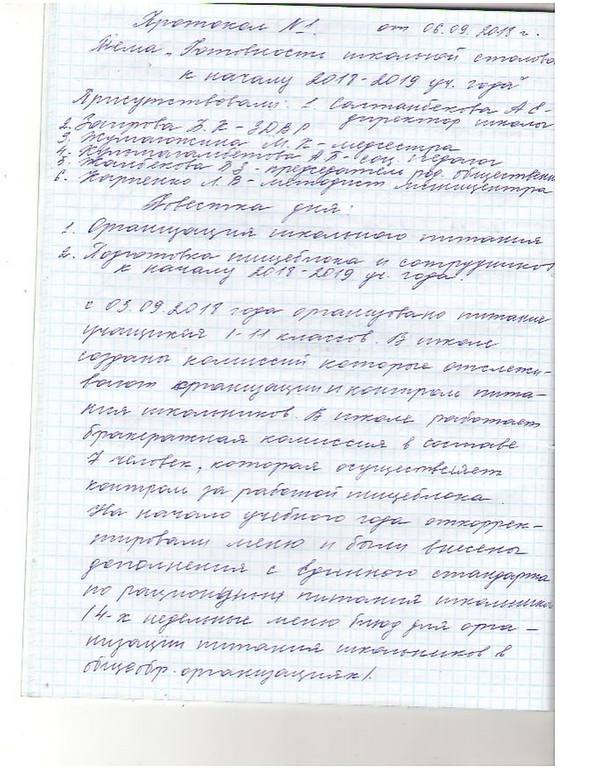 Протокол №1. от 06.09.2018 г.
Тема „Готовности школьной столовой
к началу 2018-2019 уч. года"
Присутствовали: 1 Салтанбекова А Е-
директор школы
2. Заирова Б К - ЗДВР
3. Жумагожина М. К - медсестра
4. Кулмагамбетова А Б - соц. педагог
5. Жанбекова - председатель род. обществен
6. Карпенко Л. В - методист Миницентра
Повестка дня:
1. Организация школьного питания
2. Подготовка пищеблока и сотрудников
к началу 2018-2019 уч. года.
с 03.09.2018 года организовано питание
учащихся 1-11 классов. В школе
созданы комиссий которые отслежи-
вают организации и контроль пита-
ния школьников. В школе работает
бракеражная комиссия в составе
7 человек, которая осуществляет
контроль за работой пищеблока.
На начало учебного года откоррек-
тировали меню и были внесены
дополнения с Единого стандарта
по рациону питания школьников
/4-х недельные меню блюд для орга-
низации питания школьников в
общеобр. организациях/.